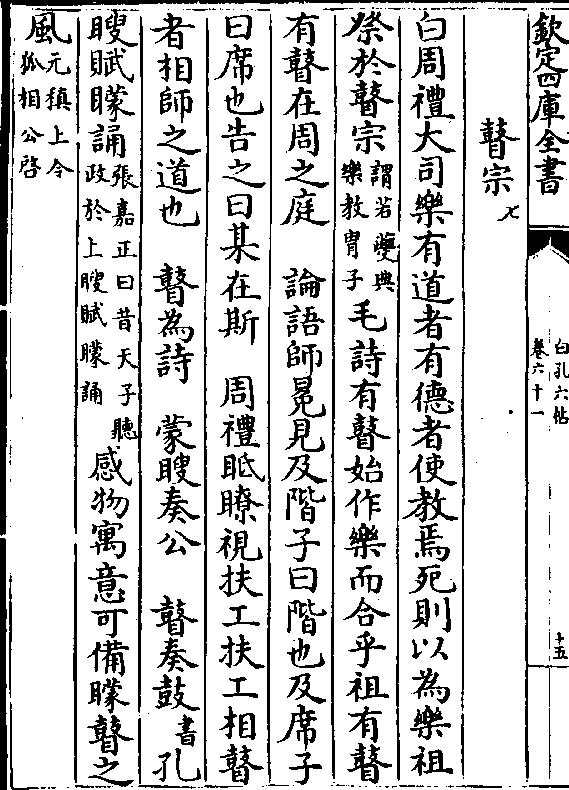 欽定四庫全書
白孔六帖
卷六十一
十五
瞽宗七
白周禮大司樂有道者有德者使教焉死則以為樂祖
祭於瞽宗謂若夔典樂教胄子毛詩有瞽始作樂而合乎祖有瞽
有瞽在周之庭 論語師冕見及階子曰階也及席子
曰席也告之曰某在斯 周禮眂瞭視扶工扶工相瞽
者相師之道也 瞽為詩 蒙瞍奏公 瞽奏鼓書孔
瞍賦矇誦張嘉正曰昔天子聽政於上瞍賦矇誦感物寓意可備矇瞽之
風元稹上令狐相公啓